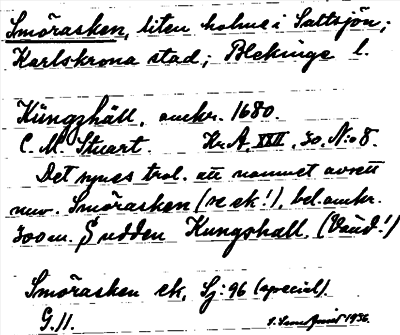 Smörasken, liten holme i Saltsjön;
Karlskrona stad; Blekinge l.
Kungzhäll, omkr. 1680.
C. M. Stuart. Kr. A. XXII, 30, N:o 8.
Det synes trol. att namnet avsett
nuv. Smörasken (se ek!), bel. omkr.
300 m. S udden Kungshall. (Vänd!)
Smörasken ek, Sj: 96 (special).
G. 11. 1936.